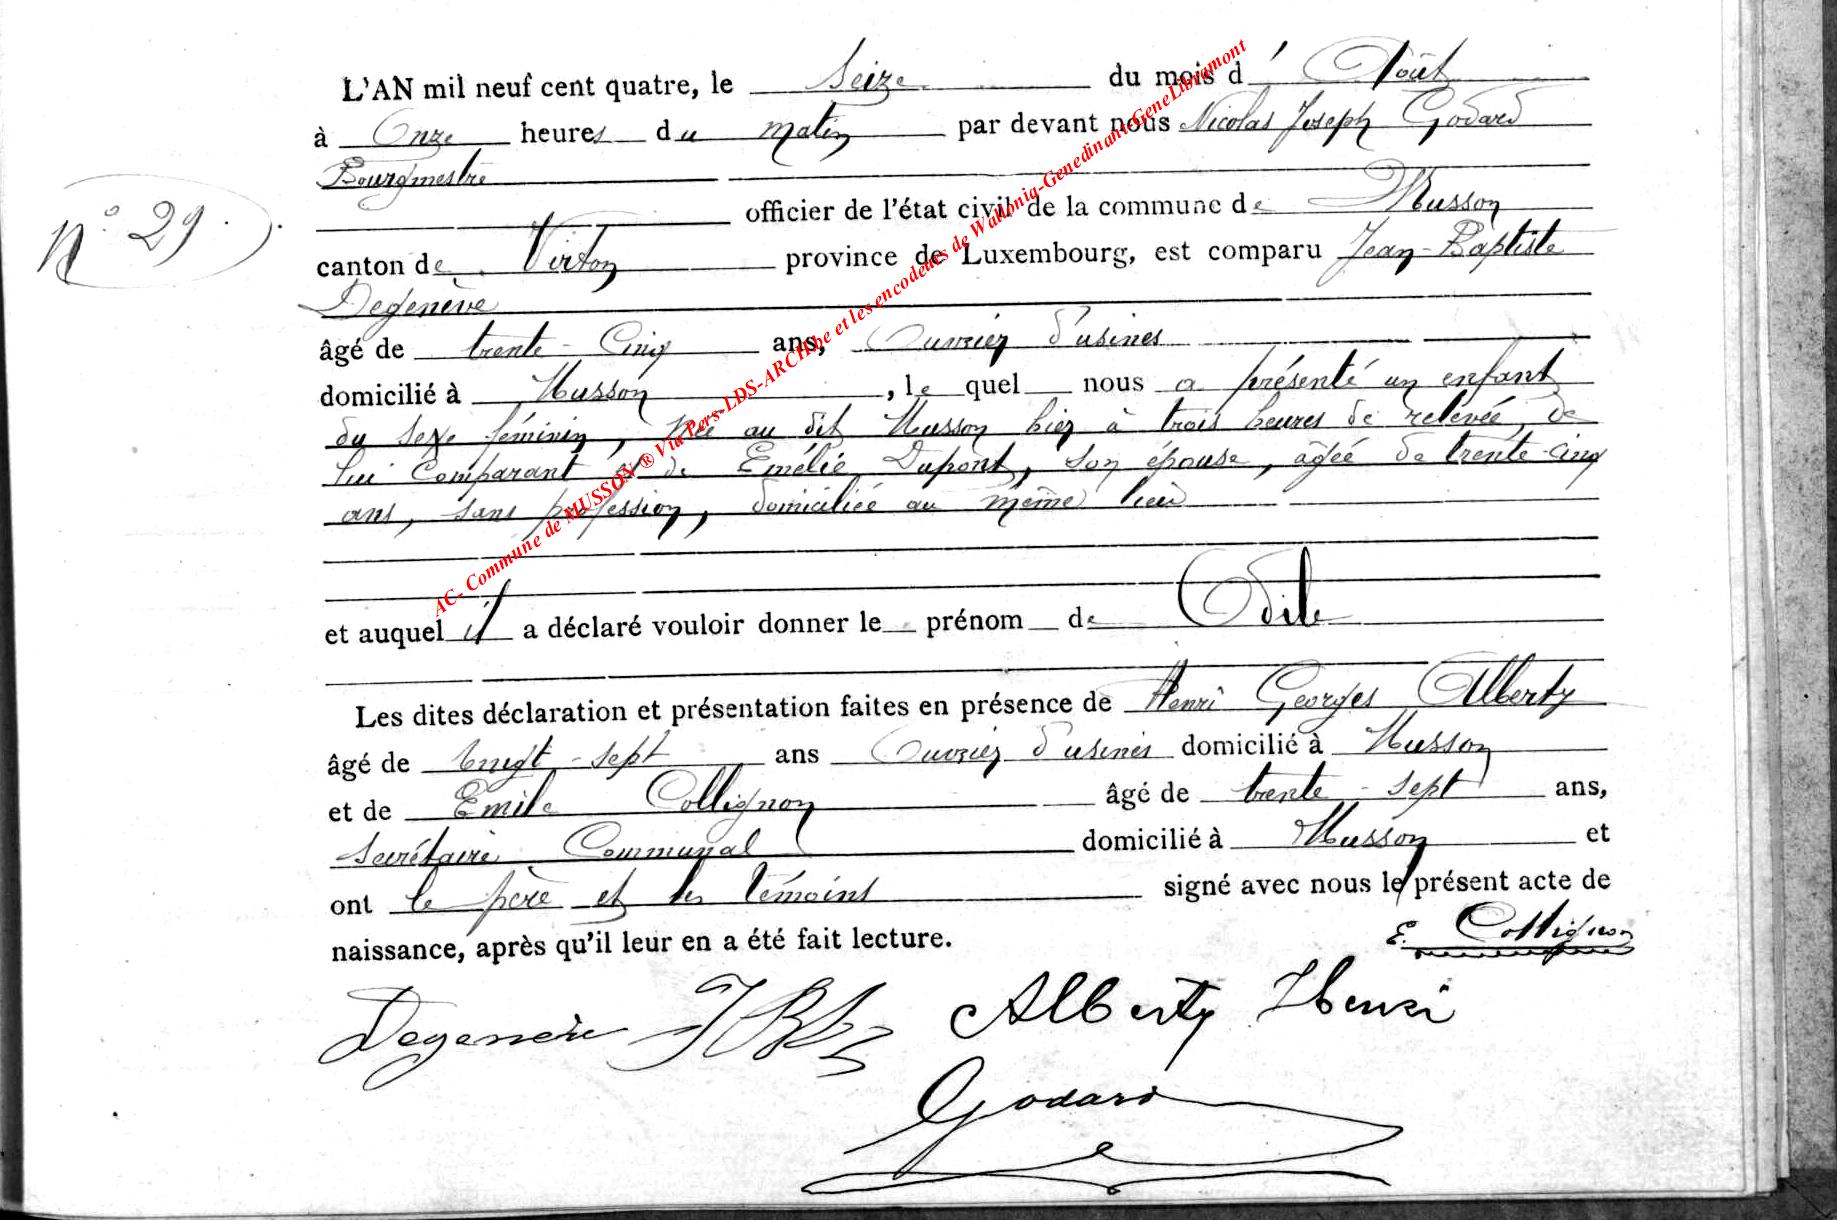 L'AN mil neuf cent quatre, le seize du mois d' Août
à Onze heures du matin par devant nous Nicolas Joseph Godard
Bourgmestre
N° 29.
officier de l'état civil de la commune de Musson
canton de Virton province de Luxembourg, est comparu Jean-Baptiste
Degenève
âgé de trente-Cinq ans, Ouvrier d'usines
domicilié à Musson, le quel nous a présenté un enfant
du sexe féminin, née au dit Musson hier à trois heures de relevée, de
lui Comparant et de Emélie Dupont, son épouse, âgée de trente-cinq
ans, sans profession, domiciliée au même lieu
et auquel il a déclaré vouloir donner le prénom de Odile
Les dites déclaration et présentation faites en présence de Henri Georges Alberty
âgé de vingt-sept ans Ouvrier d'usines domicilié à Musson
et de Emile Collignon âgé de trente-sept ans,
Secrétaire Communal domicilié à Musson et
ont le père et les témoins signé avec nous le présent acte de
naissance, après qu'il leur en a été fait lecture.
E. Collignon
Degenève JB Alberty Henri
Godard
AC- Commune de MUSSON ® Via Pers-LDS-ARCH.be et les encodeurs de Wallonia-Genedinant-GeneLibramont